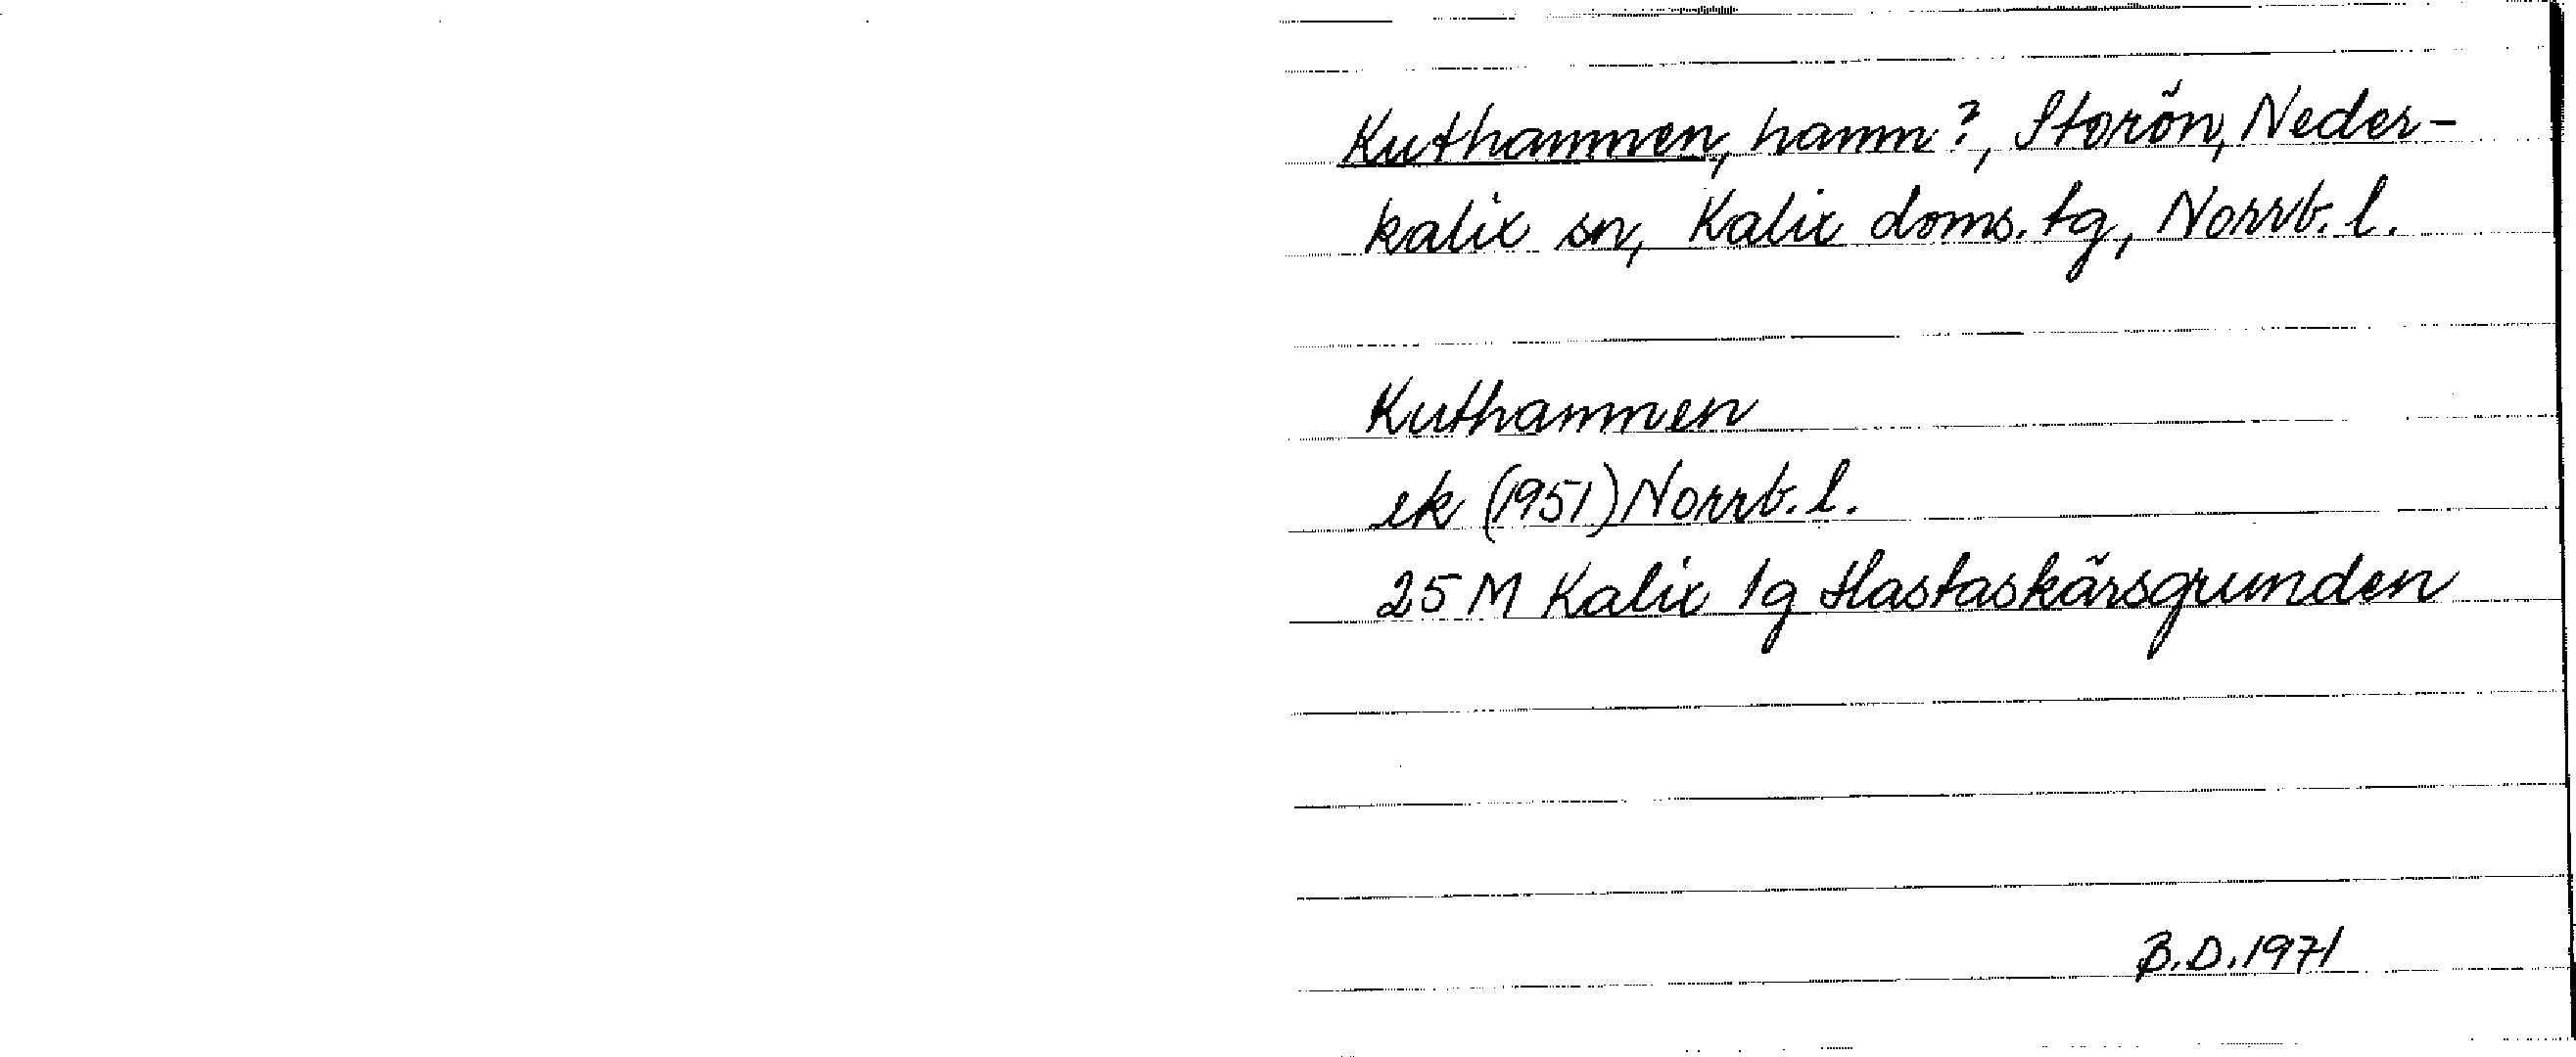 Kuthammen, hamn?, Storön, Neder-
kalix sn, Kalix doms. tg, Norrb. l.
Kuthammen
ek (1951) Norrb. l.
25 M Kalix 1g Hastaskärsgrunden
B.D. 1971